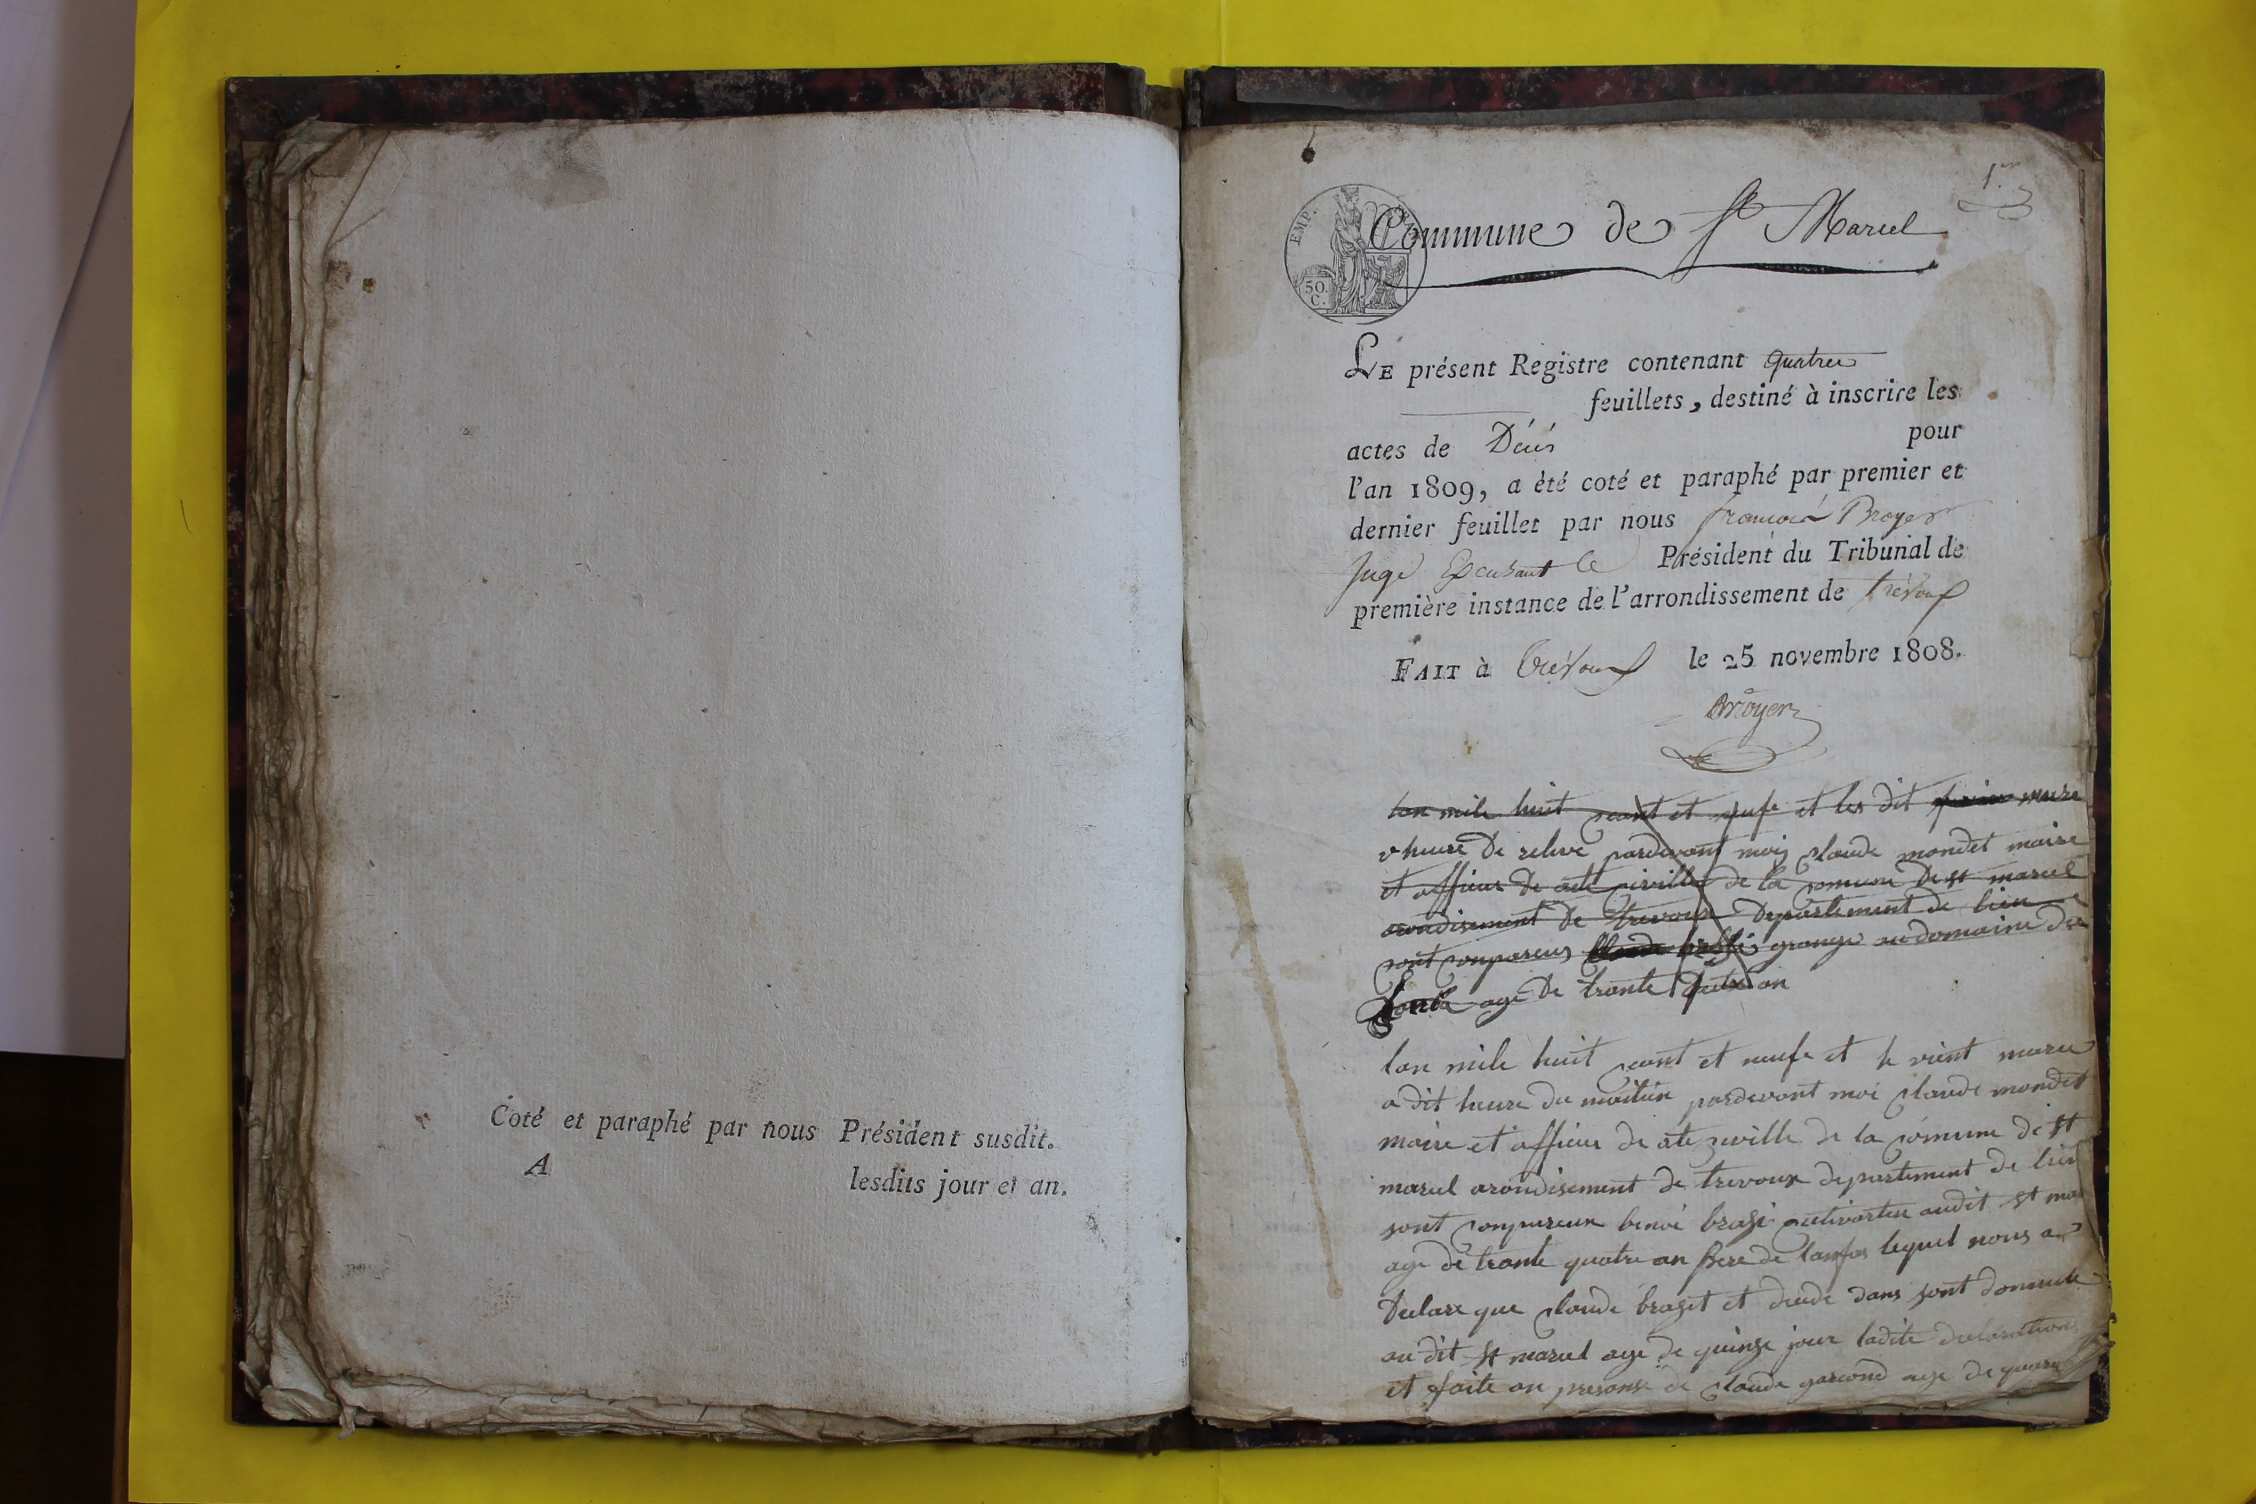 Coté et paraphé par nous Président susdit.
A lesdits jour et an.
1.er
EMP.
50.
C.
Commune de St Marcel
LE présent Registre contenant quatre
feuillets, destiné à inscrire les
actes de Décés pour
l'an 1809, a été coté et paraphé par premier et
dernier feuillet par nous françois Broyer
Juge Excusant le Président du Tribunal de
première instance de l'arrondissement de trévoux
FAIT à trévoux le 25 novembre 1808.
Broyer
lan mile huit cant et nufe et les dit mars
heure de releve pardevant moy claude mondet maire
et officier de acte civille de la comune de st marcel
arondisement de trevoux departement de lien
sont conpareus grange au domaine de
age de trante an
lan mile huit cant et neufe et le vint mars
a dit heure du maitin pardevant moi claude mondet
maire et officier de ate civille de la comune de st
marcel arondisement de trevoux departement de lein
sont conpareux benoi brazi cultivarteu audit st mar
age de trante quatre an pere de lanfas lequel nous a
declare que claude brazit et decede dans sont domicile
au dit st marcel age de quinze jour ladite declaration
et faite an presanse de claude garcond age de quara